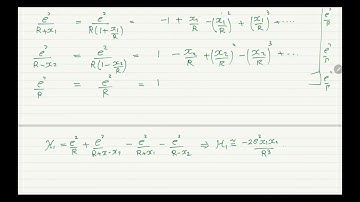 e²/(R+x₁) = e²/(R(1+x₁/R)) = -1 + x₁/R - (x₁/R)² + (x₁/R)³ + ···· e²/R
e²/(R-x₂) = e²/(R(1-x₂/R)) = 1 - x₂/R + (x₂/R)² - (x₂/R)³ + ··· e²/R
e²/R = e²/R = 1 e²/R
H₁ = e²/R + e²/(R+x₁-x₂) - e²/(R+x₁) - e²/(R-x₂) ⇒ H₁ ≅ -2e²x₁x₂/R³